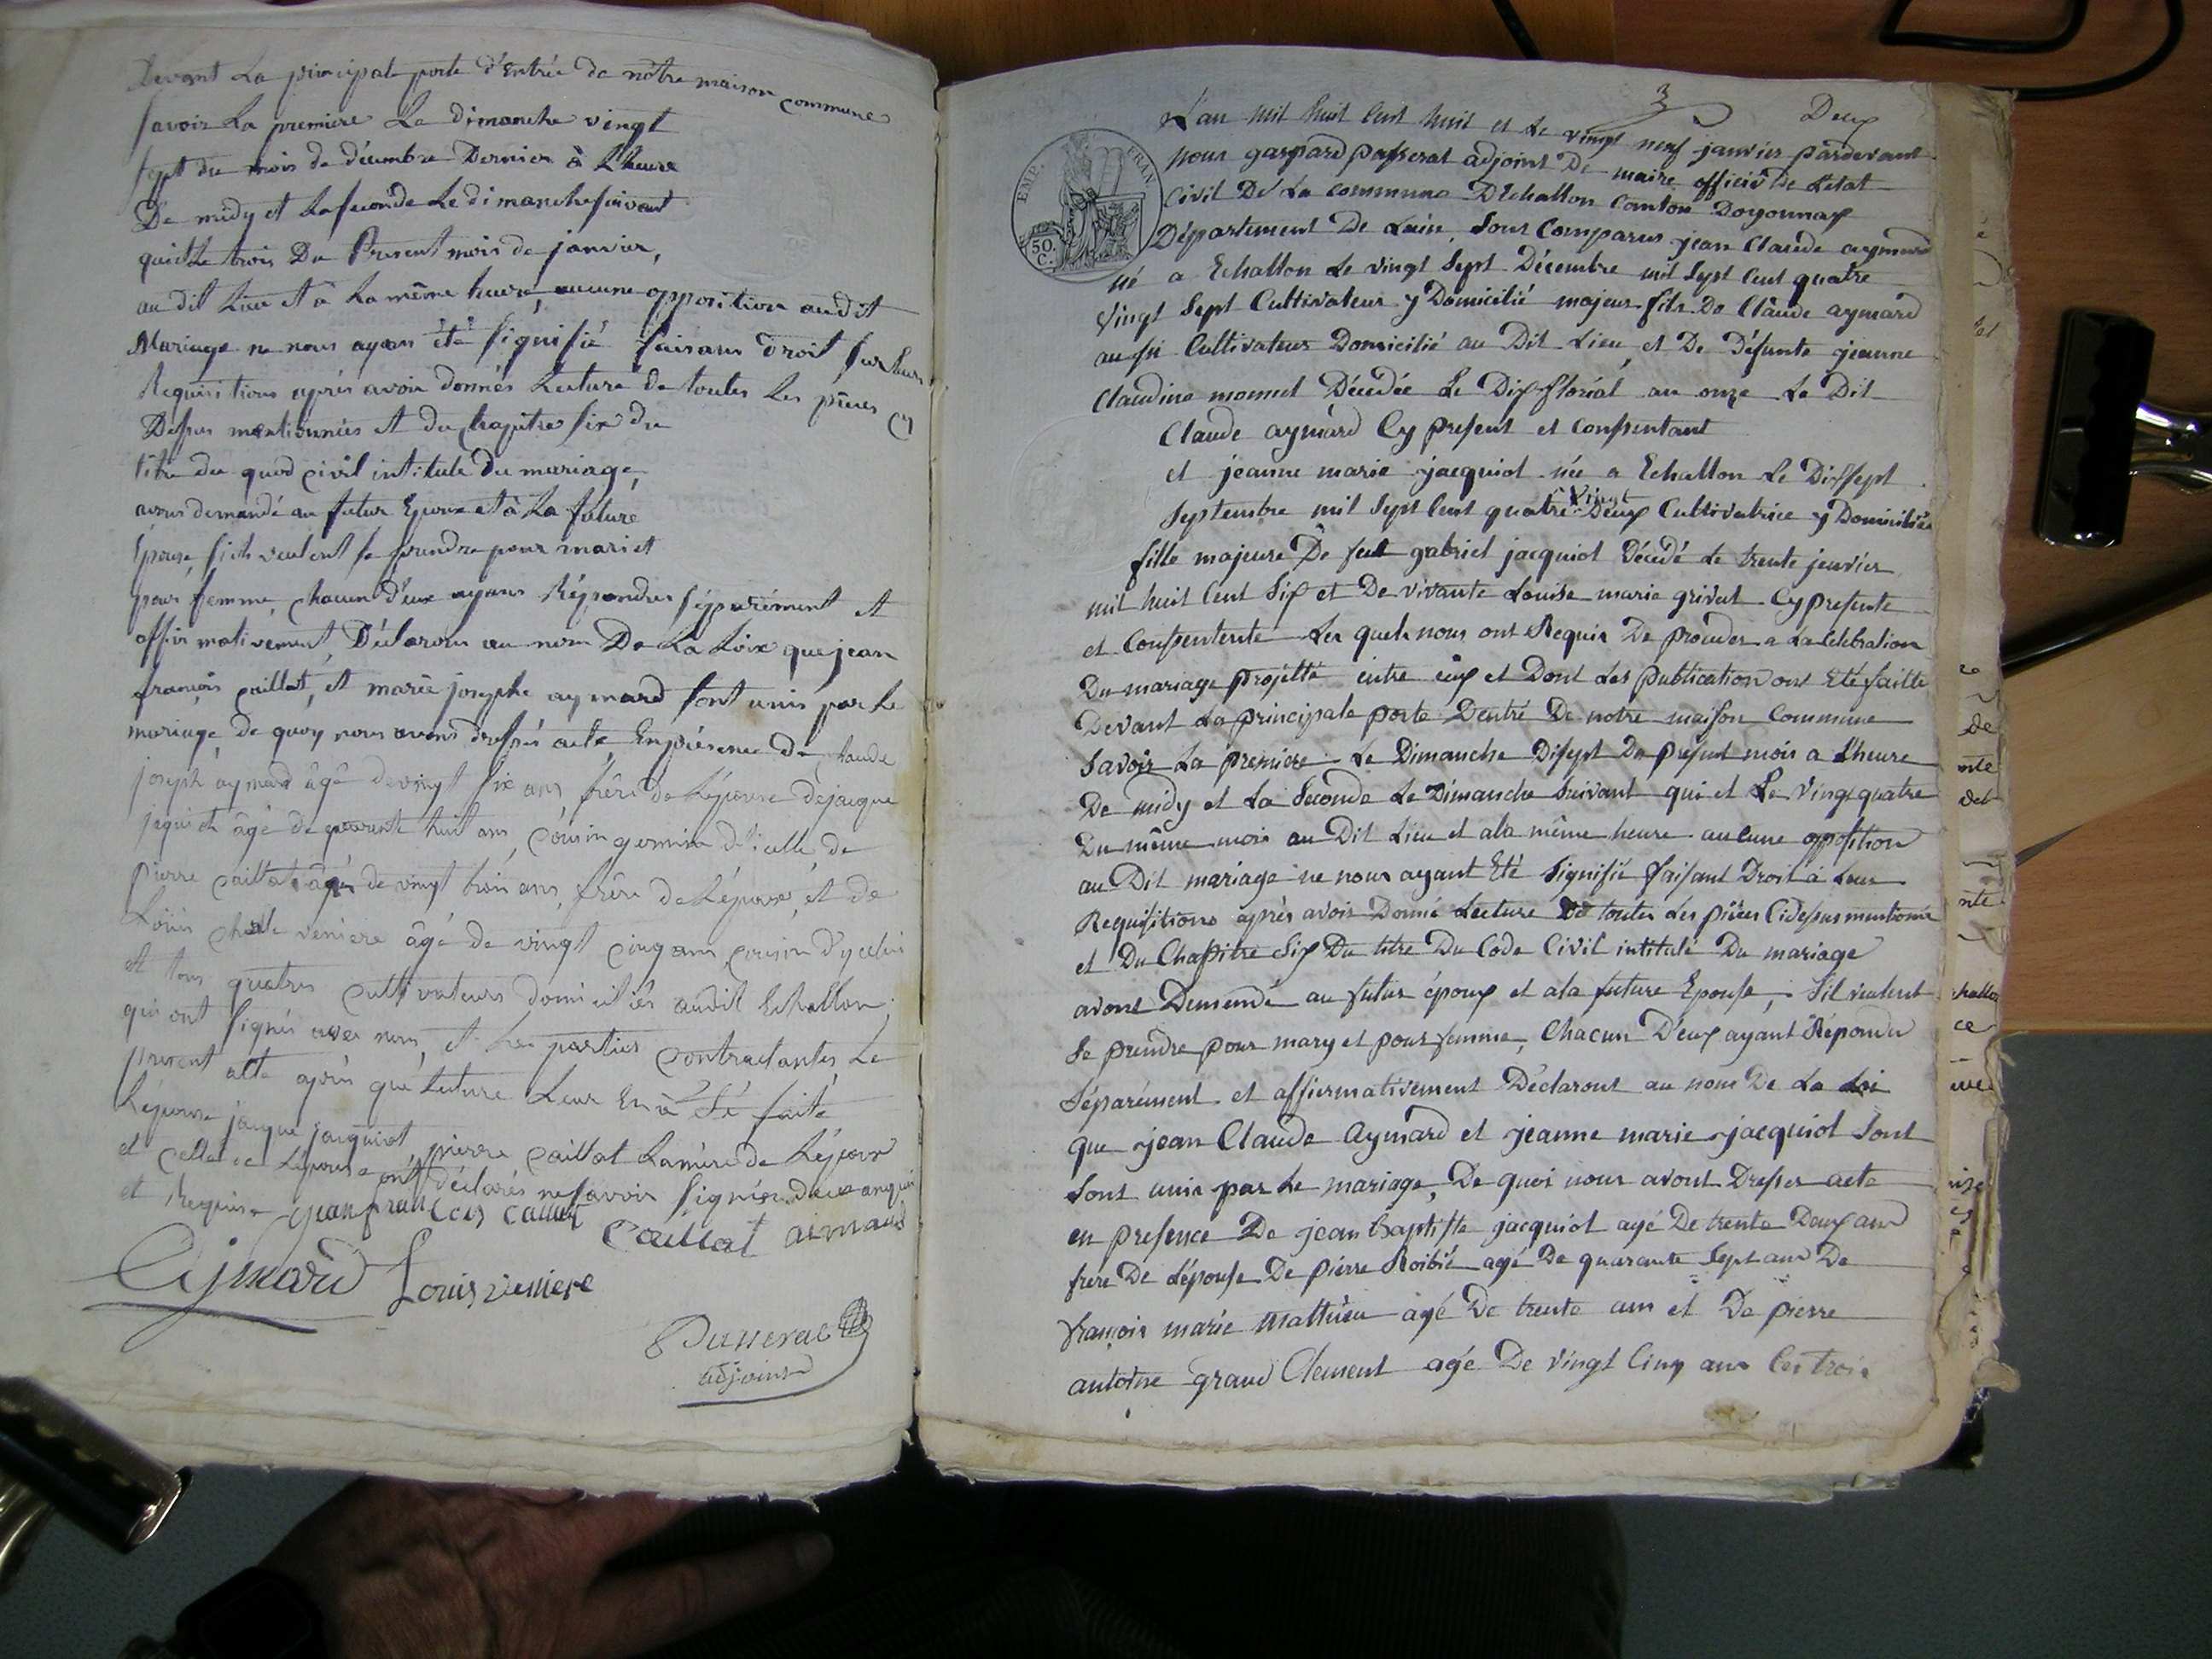 Devant La principale porte d'Entrée de nôtre maison commune
savoir La premiere Le dimanche vingt
sept du mois de décembre Dernier à L'heure
De midy et La seconde Le dimanche suivant
qui Le trois Du Présent mois de janvier,
au dit Lieu et à La même heure, aucune opposition audit
Mariage ne nous ayans été signifié faisans droit sur Leurs
Requisitions après avoir donnés Lecture de toutes Les pièces cy
Dessus mentionnées et du chapitre six du
titre du quod civil intitule du mariage,
avons demandé au futur Epoux et à La future
Epouse, s'ils veulent se prendre pour mari et
pour femme, chacun d'eux ayans Répondus séparément et
affirmativement, Déclarons au nom De La Loix que jean
françois caillat, et marie josephe aymard sont unis par Le
mariage, de quoy nous avons dressés acte En présence de claude
joseph aymard âgé de vingt six ans, frère de L'épouse de jacque
jaquiot âgé de quarente huit ans, cousin germin d'icelle, de
pierre caillat âgés de vingt trois ans, frère de L'époux, et de
Louis veniere âgé de vingt cinq ans cousin d'ycelui
et tous quatres cultivateurs domiciliés audit Echallon,
qui ont signés avec nous, et Les parties contractantes Le
present acte après que Lecture Leur En à été faite
L'épouse jacque jacquiot pierre caillat La mère de L'époux
et celle de L'épouse ont déclarés ne savoir signés de ce enquis
et Requis. jean francois caillat
caillat aimard
Aymard Louis veniere
Passerat
adjoint
3 Deux
L'an mil huit cent huit et le vingt neuf janvier pardevant
nous gaspard passerat adjoint De maire officié De Letat
Civil De La commune D'Echallon Canton Doyonnax
EMP. FRAN
50.
C.
Département De Lain, Sont Comparus jean Claude aymard
né a Echallon Le vingt Sept Décembre mil Sept Cent quatre
Vingt Sept Cultivateur y Domicilié majeur fils De Claude aymard
aussi Cultivateur Domicilié au Dit Lieu et De Défunte jeanne
Claudine momet Décedée Le Dix floréal an onze Le Dit
Claude aymard Cy present et Consentant
et jeanne marie jacquiot née a Echallon Le Dissept
Septembre mil Sept Cent quatre Vingt Deux Cultivatrice y Domiciliée
fille majeure De feut gabriel jacquiot Décedé Le trente janvier
mil huit Cent Six et De vivante Louise marie grivat Cy presente
et Consentente Les quels nous ont Requis De proceder a La Celebration
Du mariage projetté entre eux et Dont Les publication ont Eté faitte
Devant La principale porte Dentré De notre maison Commune
Savoir La premiere Le Dimanche Disept Du present mois a L'heure
De midy et La Seconde Le Dimanche Suivant qui et Le Vingt quatre
Du même mois au Dit Lieu et ala même heure aucune opposition
au Dit mariage ne nous ayant Eté Signifié faisant Droit à Leur
Requisitions après avoir Donné Lecture De toutes Les pièces Cidessus mentionné
et Du Chapitre Six Du titre Du Code Civil intitulé Du mariage
avons Demandé au futur époux et ala future Epouse, Sil veulent
Se prendre pour mary et pour femme, Chacun D'eux ayant Répondu
Séparément et affirmativement Déclarons au nom De La Loi
que jean Claude Aymard et jeanne marie jacquiot Sont
Sont unis par Le mariage, De quoi nous avont Dresser acte
en presence De jean baptiste jacquiot agé De trente Deux ans
frere De Lépouse De pierre Roibié agé De quarante Sept ans De
françois marie Mathieu âgé De trente ans et De pierre
antoine grand Clement agé De Vingt Cinq ans Les trois